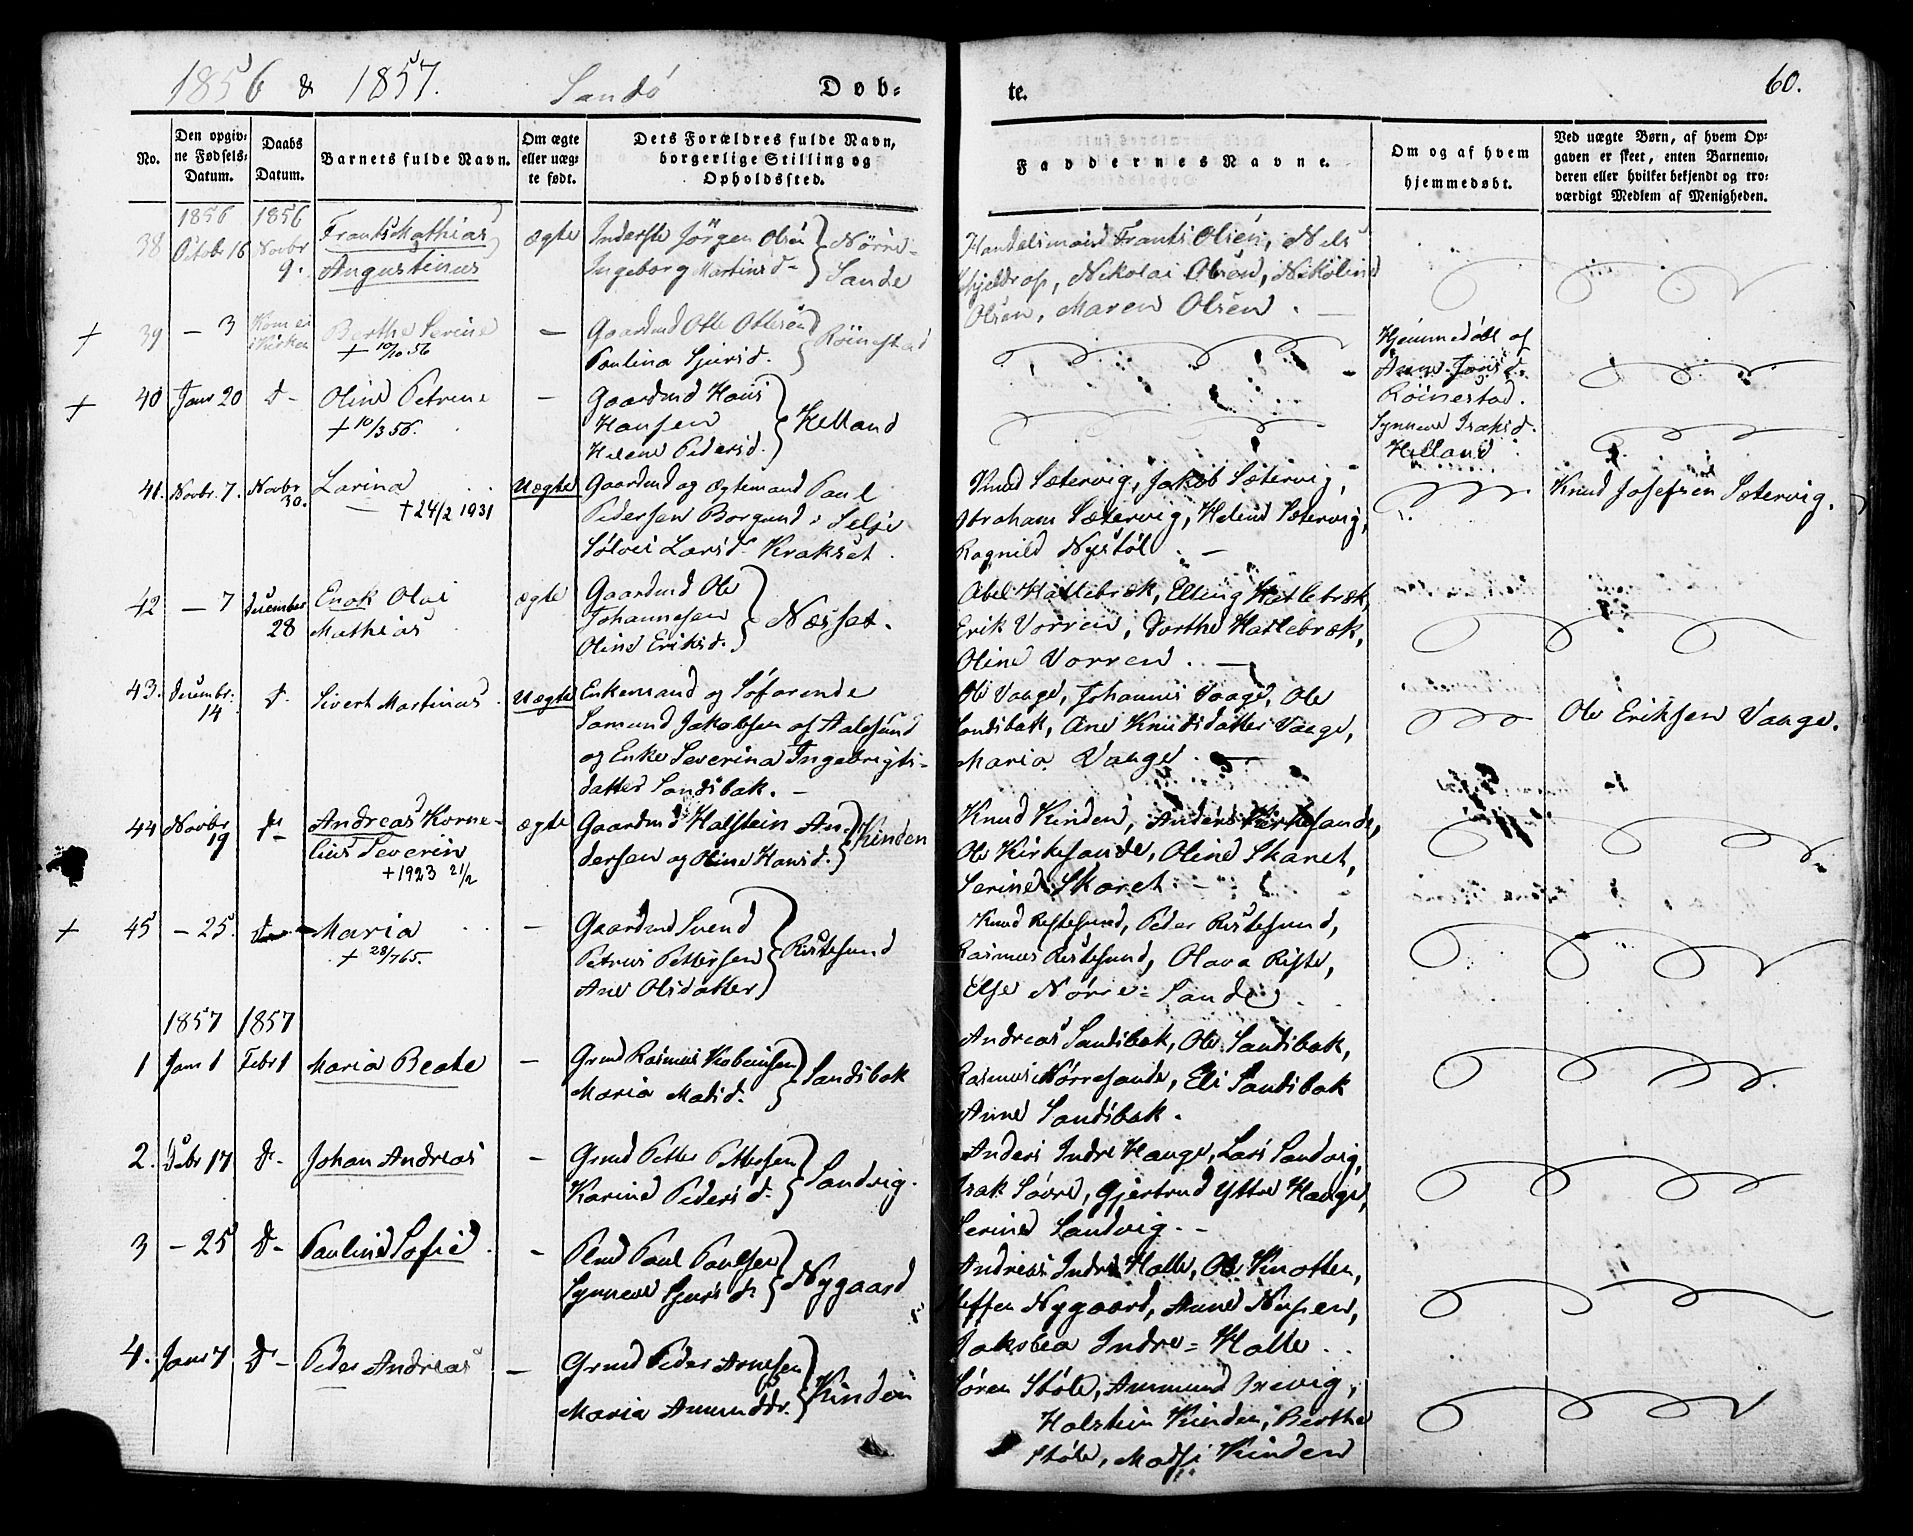 1856 & 1857. Sandö Døb=
te. 60.
No.
Den opgiv=
ne Fødsels=
Datum.
Daabs
Datum.
Barnets fulde Navn.
Om ægte
eller uæg=
te født.
Dets Forældres fulde Navn,
borgerlige Stilling og
Opholdssted.
Faddernes Navne.
Om og af hvem
hjemmedøbt.
Ved uægte Børn, af hvem Op=
gaven er skeet, enten Barnemo=
deren eller hvilket bekjendt og tro=
værdigt Medlem af Menigheden.
1856 1856
38 Octobr 16 Novbr
9.
Frants Mathias
Augustinus
ægte
Inderste Jörgen Olsen
Ingeborg Martinsd-
Nörre-
Sande
Handelsmand Frants Olsen, Nels
Nikolai Olsen, Nikoline
Olsen, Maren Olsen.
+ 39 - 3 Kom ei
i Kirken
Berthe Serine
+ 10/10 56
-
Gaardmd Otte Ottesen
Paulina Sjursd.
Röinestad
Hjemmedöbt af
Anne Jonsd.
Röinestad.
+ 40 Janr 20 D-
Oline Petrine
+ 10/3 56.
-
Gaardmd Hans
Hansen
Helene Pedersd.
Helland
Synneve Isaksd.
Helland
41. Novbr. 7. Novbr
30.
Larina
+ 24/2 1931
Uægte
Gaardmd og Ægtemand Paul
Pedersen Borgund i Selje
Sölvei Larsd. Krakset.
Knud Sætervig, Jakob Sætervig,
Abraham Sætervig, Heline Sætervig,
Ragnild Nystöl. -
Knud Josefsen Sætervig.
42 - 7 December
28
Enok Olai
Mathias
ægte
Gaardmd Ole
Johannesen
Oline Eriksd.
Næsset.
Abel Hatlebræk, Elling Hatlebræk,
Erik Vorren, Dorthe Hatlebræk,
Oline Vorren. -
43. Decembr.
14
D.
Sivert Martinus.
Uægte
Enkemand og Söfarende
Samund Jakobsen af Aalesund
og Enke Severina Ingebrigts-
datter Sandsbak. -
Ole Vaage, Johannes Vaage, Ole
Sandsbak, Ane Knudsdatter Vaage,
Maria Vaage. -
Ole Eriksen Vaage.
44 Novbr
19
D-
Andreas Korne-
lius Severin
+ 1923 21/2
ægte
Gaardmd Halstein An-
dersen og Oline Hansd.
Kinden
Knud Kinden, Anders Kirkesande,
Ole Kirkesande, Oline Skaret,
Serine Skaret. -
+ 45 - 25. D-
Maria
+ 28/7 65.
-
Gaardmd Svend
Petrus Pettersen
Ane Olsdatter
Ristesund
Knud Ristesund, Peder Ristesund,
Rasmus Ristesund, Olava Riste,
Else Nörre=Sande
1857 1857
1 Janr 1 Febr 1
Maria Beate
-
Grmd Rasmus
Maria Madsd.
Sandsbak
Andreas Sandsbak, Ole Sandsbak,
Rasmus Nörresande, Eli Sandsbak
Anne Sandsbak.
2. Febr 17 D-
Johan Andreas
-
Grmd Petter Pettersen
Karine Pedersd.
Sandvig.
Anders Indre Hauge, Lars Sandvig,
Isak Sövre, Gjertrud Yttre Hauge,
Serine Sandvig. -
3 - 25 D-
Pauline Sofie.
-
Plmd Paul Paulsen
Synneve Sjursd.
Nygaard
Andreas Indre Halle, Ole Knotten,
Steffen Nygaard, Anne
Jaksbea Indre=Halle.
4. Janr 7 D-
Peder Andreas
-
Grmd Peder Arnesen
Maria Amundsdr.
Kinden
Sören Stöle, Ammund
Halstein Kinden, Berthe
Stöle, Madsi Kinden